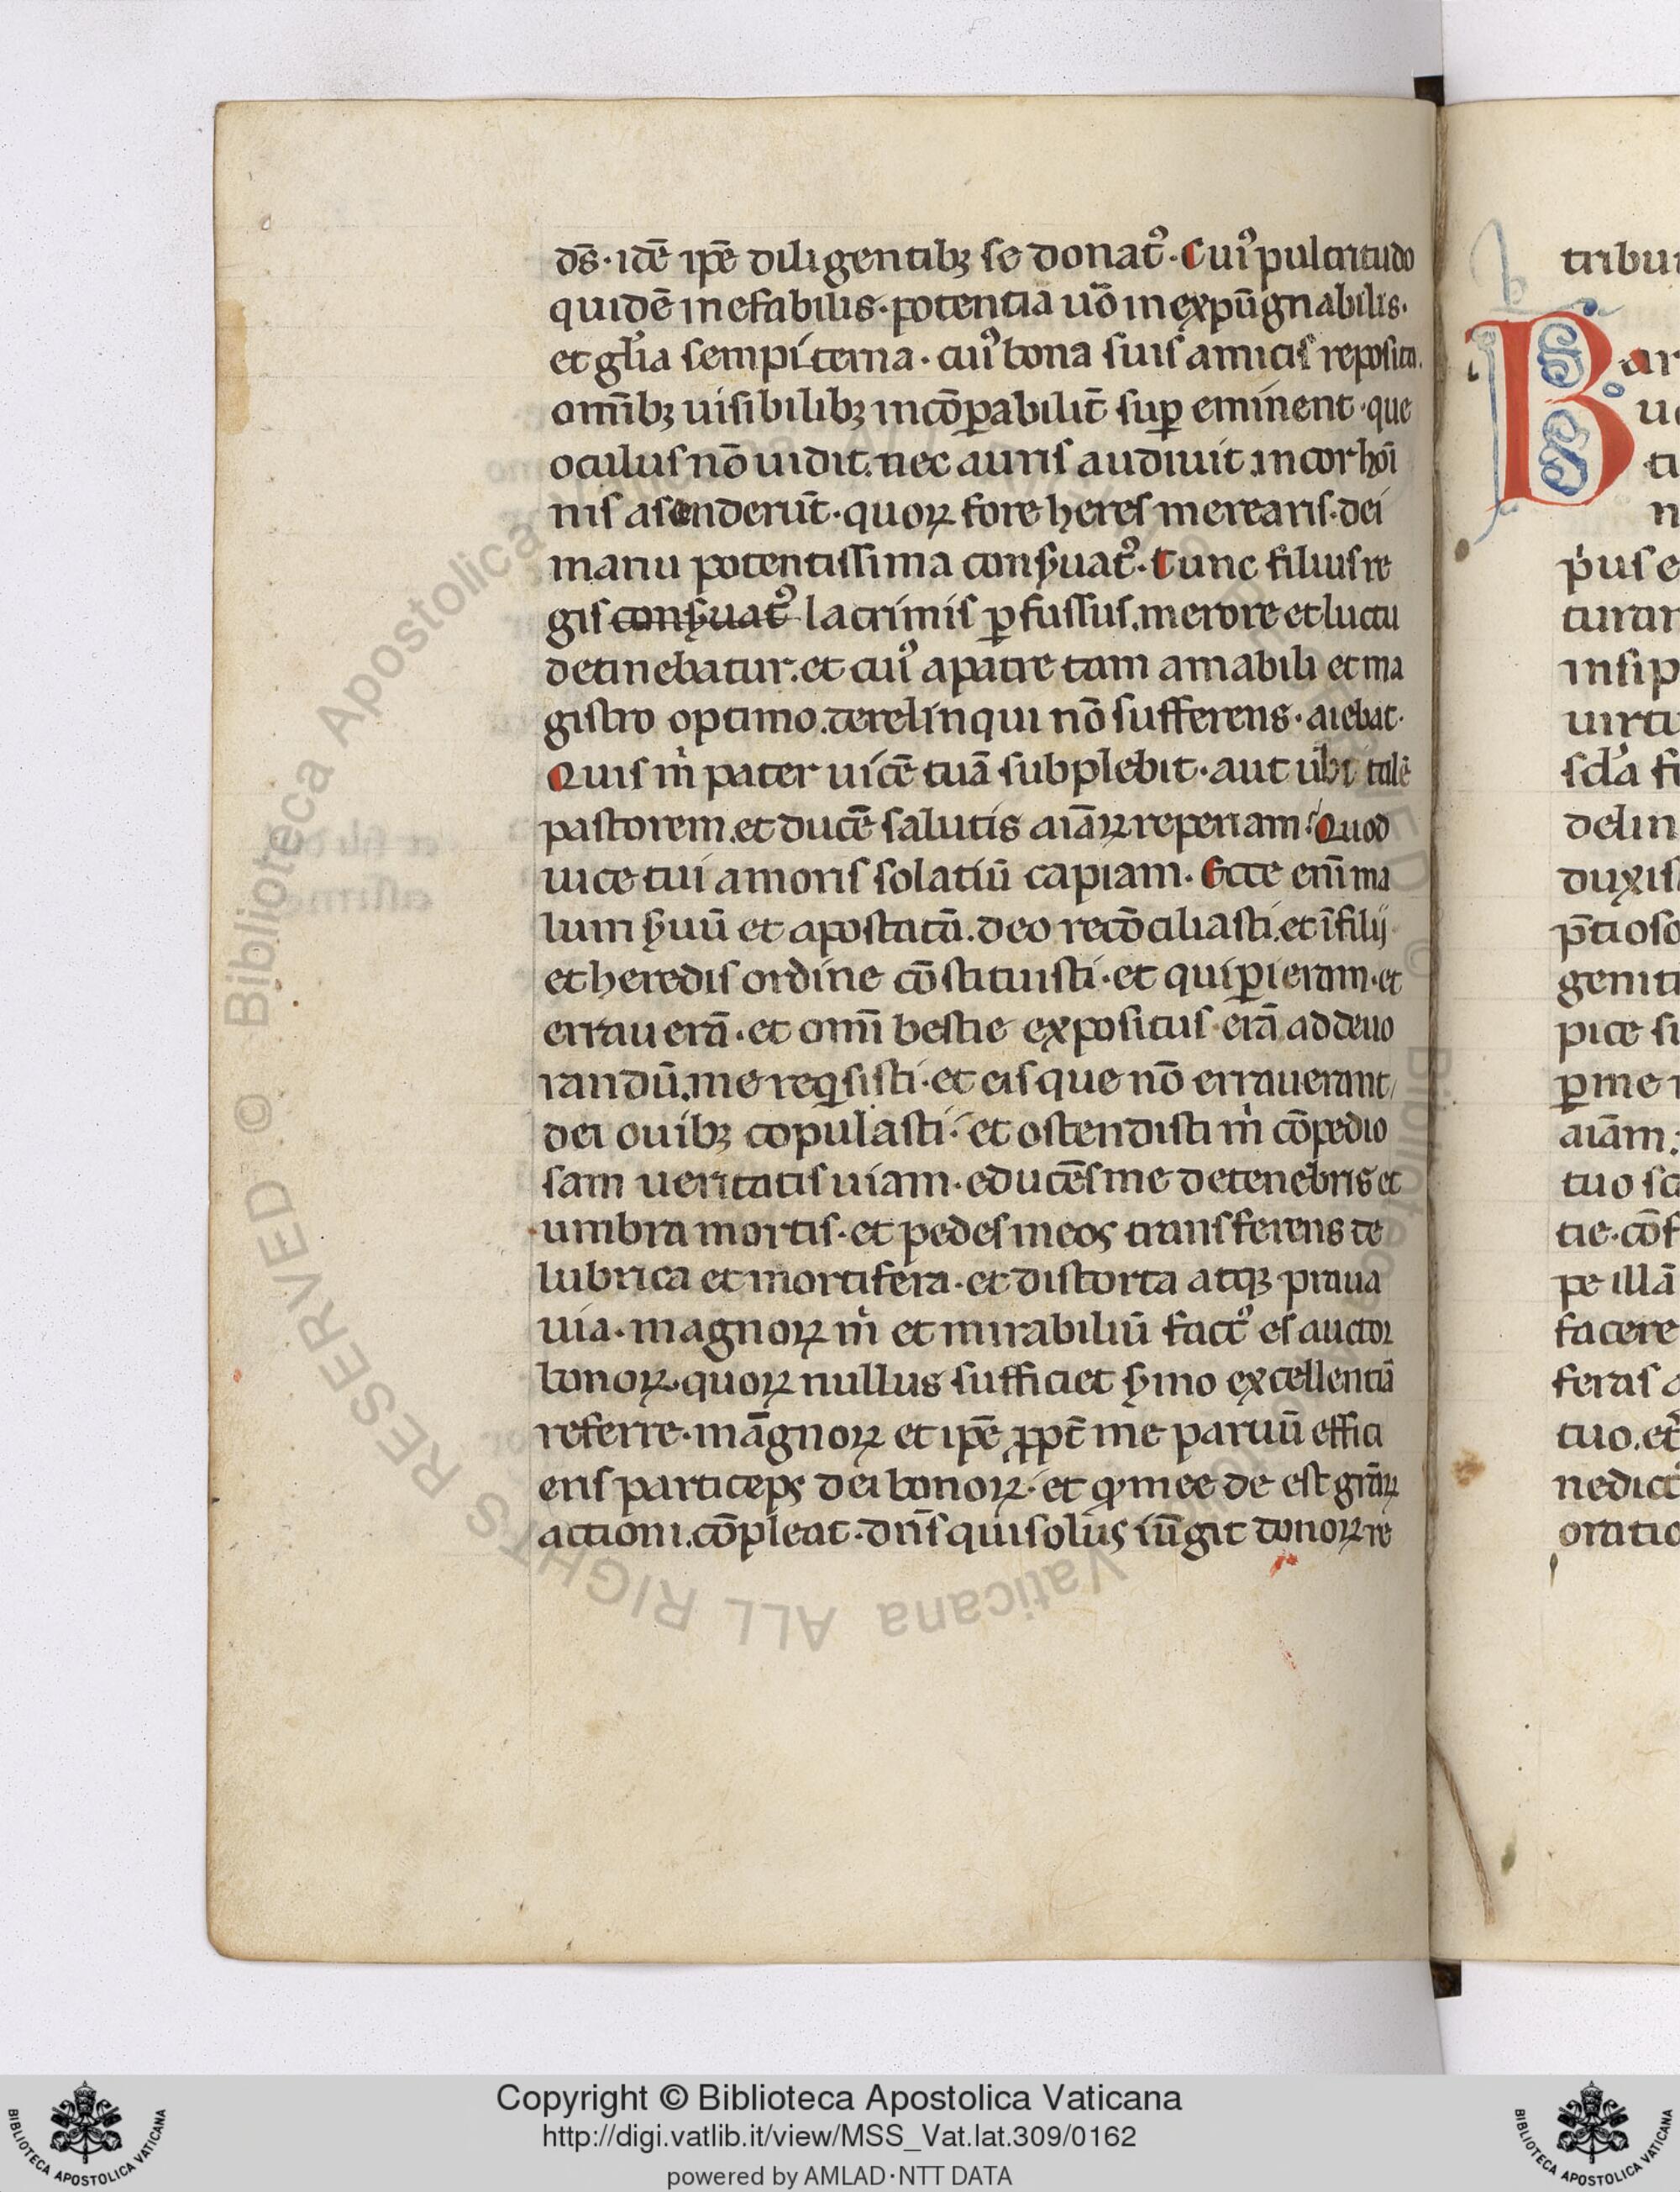 ds̄· idē ip̄e diligentibꝫ se donat᷒· Cui᷒ pulcritudo
quidē inefabilis· potentia uō inexpūgnabilis·
et gl̄ia sempiterna· cui᷒ bona suis amicis reposita.
om̄ibꝫ uisibilibꝫ incōꝑabilit̄ suꝑ eminent· que
oculus nō uidit. nec auris audiuit. in cor hoī
nis asenderūt· quoꝝ fore heres merearis· dei
manu potentissima conẜuat᷒· Tunc filius re
gis conẜuat᷒ lacrimis ꝑfussus. merore et luctu
detinebatur. et cui᷒ a patre tam amabili et ma
gistro optimo. derelinqui nō sufferens· aiebat·
Quis m̍ pater uicē tuā subplebit· aut ubi talē
pastorem. et ducē salutis aīaꝝ reperiam? Quod
uice tui amoris solatiū capiam· Ecce enī ma
lum ẜuū et apostatā. deo recōciliasti. et ī filij
et heredis ordine cōstituisti· et qui ꝑieram· et
errauerā· et om̄i bestie expositus erā ad deuo
randū. me reqͥsisti· et eis que nō errauerant
dei ouibꝫ copulasti· et ostendisti m̍ cōpedio
sam ueritatis uiam· educēs me de tenebris et
umbra mortis· et pedes meos transferens de
lubrica et mortifera· et distorta atqꝫ praua
uia· magnoꝝ m̍ et mirabiliū fact᷒ es auctor
bonoꝝ· quoꝝ nullus sufficiet ẜmo excellentiā
referre· māgnoꝝ et ip̄e ꝓpt̄ me paruū effici
eris particeps dei bonoꝝ· et ꝙ mee de est gr̄aꝝ
actioni. cōpleat· dn̄s qui solus iūgit donoꝝ re
tribu
B
ar
ue
ti
n
p̍us e
turar
insip
uirtu
scl̄a fi
delin
duxis
p̄tioso
geniti
pice si
ꝑ me
aīam:
tuo sc
tie· cōf
pe illā
facere
feras a
tuo. et
nedict
oratio
© Biblioteca Apostolica Vaticana ALL RIGHTS RESERVED
Copyright © Biblioteca Apostolica Vaticana
http://digi.vatlib.it/view/MSS_Vat.lat.309/0162
powered by AMLAD·NTT DATA
BIBLIOTECA APOSTOLICA VATICANA
BIBLIOTECA APOSTOLICA VATICANA